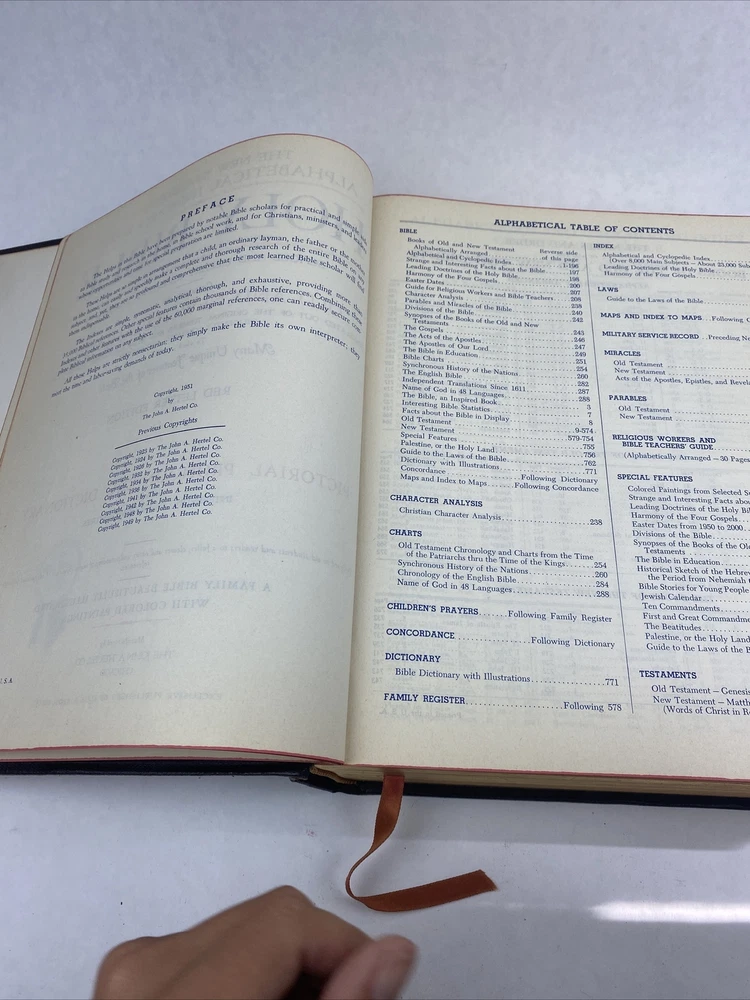 PREFACE
The Helps in this Bible have been prepared by notable Bible scholars for practical and simple use
in Bible study and reading in the home, in Bible school work, and for Christians, ministers, and
where time and special preparation are limited.
These Helps are so simple in arrangement that a child, an ordinary layman, the father or the mother
in the home, can easily and speedily make a complete and thorough research of the entire Bible on
subject, and, yet, they are so profound and comprehensive that the most learned Bible scholar will
them indispensable.
The Indexes are simple, systematic, analytical, thorough, and exhaustive, providing more than
Biblical references. Other special features contain thousands of Bible references. Combining
Indexes and other features with the use of the 60,000 marginal references, one can readily secure
plete Biblical information on any subject.
All these Helps are strictly nonsectarian; they simply make the Bible its own interpreter; they
meet the time and labor-saving demands of today.
Copyright, 1951
by
The John A. Hertel Co.
Previous Copyrights
Copyright, 1923 by The John A. Hertel Co.
Copyright, 1924 by The John A. Hertel Co.
Copyright, 1928 by The John A. Hertel Co.
Copyright, 1932 by The John A. Hertel Co.
Copyright, 1934 by The John A. Hertel Co.
Copyright, 1936 by The John A. Hertel Co.
Copyright, 1941 by The John A. Hertel Co.
Copyright, 1942 by The John A. Hertel Co.
Copyright, 1948 by The John A. Hertel Co.
Copyright, 1949 by The John A. Hertel Co.
U.S.A.
ALPHABETICAL TABLE OF CONTENTS
BIBLE
Books of Old and New Testament Reverse side
Alphabetically Arranged of this page
Alphabetical and Cyclopedic Index 1-196
Strange and Interesting Facts about the Bible 197
Leading Doctrines of the Holy Bible 198
Harmony of the Four Gospels 200
Easter Dates 207
Guide for Religious Workers and Bible Teachers 208
Character Analysis 238
Parables and Miracles of the Bible 238
Divisions of the Bible 240
Synopses of the Books of the Old and New 242
Testaments
The Gospels 245
The Acts of the Apostles 246
The Apostles of Our Lord 247
The Bible in Education 249
Bible Charts 251
Synchronous History of the Nations 254
The English Bible 260
Independent Translations Since 1611 282
Name of God in 48 Languages 287
The Bible, an Inspired Book 288
Interesting Bible Statistics 3
Facts about the Bible in Display 7
Old Testament 8
New Testament 9-574
Special Features 579-754
Palestine, or the Holy Land 755
Guide to the Laws of the Bible 756
Dictionary with Illustrations 762
Concordance Following Dictionary 771
Maps and Index to Maps Following Concordance
CHARACTER ANALYSIS
Christian Character Analysis 238
CHARTS
Old Testament Chronology and Charts from the Time
of the Patriarchs thru the Time of the Kings 254
Synchronous History of the Nations 260
Chronology of the English Bible 284
Name of God in 48 Languages 288
CHILDREN'S PRAYERS Following Family Register
CONCORDANCE Following Dictionary
DICTIONARY
Bible Dictionary with Illustrations 771
FAMILY REGISTER Following 578
INDEX
Alphabetical and Cyclopedic Index
(Over 8,000 Main Subjects — About 23,000 Sub
Leading Doctrines of the Holy Bible
Harmony of the Four Gospels
LAWS
Guide to the Laws of the Bible
MAPS AND INDEX TO MAPS Following C
MILITARY SERVICE RECORD Preceding Ne
MIRACLES
Old Testament
New Testament
Acts of the Apostles, Epistles, and Revela
PARABLES
Old Testament
New Testament
RELIGIOUS WORKERS AND
BIBLE TEACHERS' GUIDE
(Alphabetically Arranged — 30 Pages
SPECIAL FEATURES
Colored Paintings from Selected S
Strange and Interesting Facts abou
Leading Doctrines of the Holy Bi
Harmony of the Four Gospels
Easter Dates from 1950 to 2000
Divisions of the Bible
Synopses of the Books of the Ol
Testaments
The Bible in Education
Historical Sketch of the Hebre
the Period from Nehemiah
Bible Stories for Young People
Jewish Calendar
Ten Commandments
First and Great Commandme
The Beatitudes
Palestine, or the Holy Land
Guide to the Laws of the B
TESTAMENTS
Old Testament — Genesi
New Testament — Matth
(Words of Christ in R